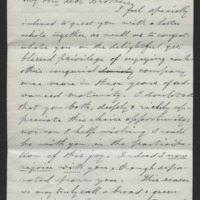 My very dear Brothers
I feel specially
inclined to greet you with a letter
while together as well as to congrat-
ulate you on the delightful, yet
blessed privilege of enjoying each
others congenial company
once more in these years of ad-
vanced maturity. I doubt not
that you both, deeply & richly ap-
preciate this choice opportunity,
nor can I help wishing I could
be with you in the participa-
tion of this joy. I do now
rejoice with you, though separ-
ated from you. This season
we may truly call a broad & green